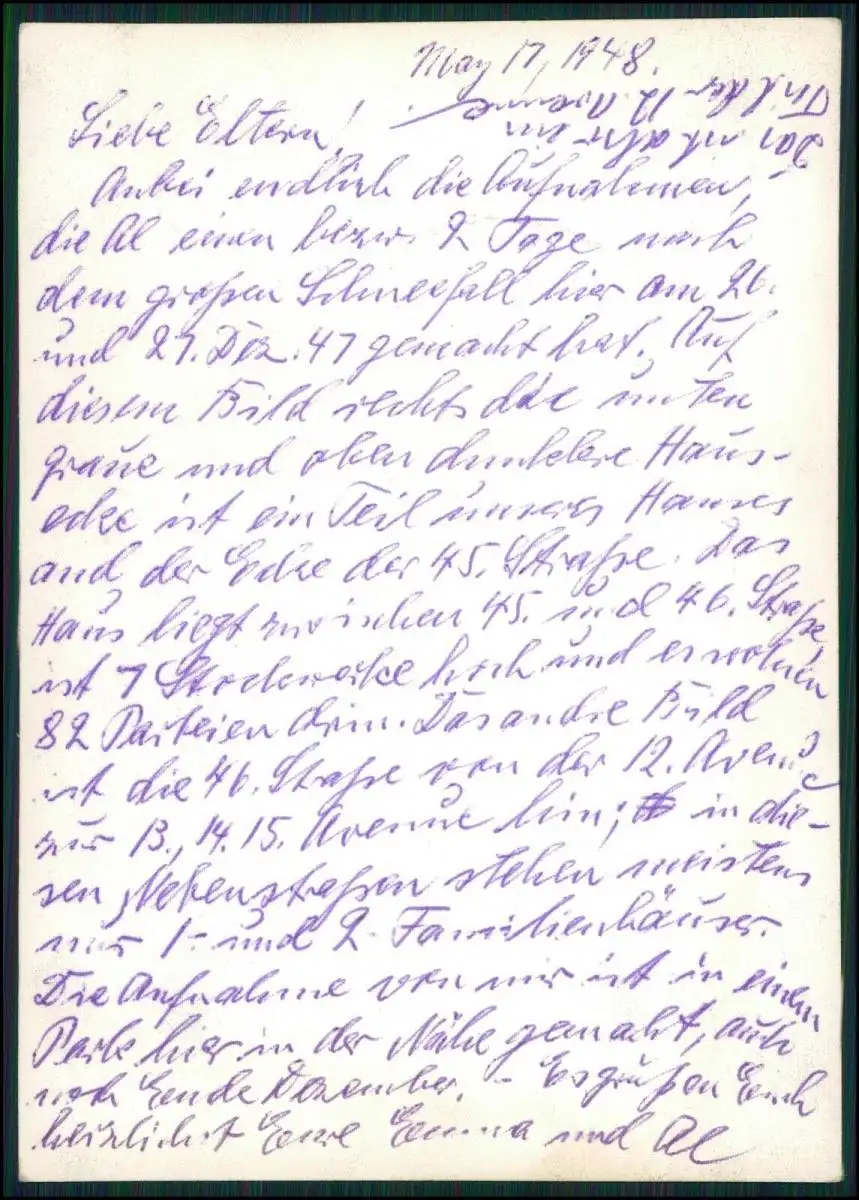 May 17, 1948.
Liebe Eltern!
Anbei endlich die Aufnahmen,
die Al einen bezw. 2 Tage nach
dem großen Schneefall hier am 26.
und 27. Dez. 47 gemacht hat. Auf
diesem Bild rechts die unten
graue und oben dunklere Haus-
ecke ist ein Teil unseres Hauses
and der Ecke der 45. Straße. Das
Haus liegt zwischen 45. und 46. Straße,
ist 7 Stockwerke hoch und es wohnen
82 Parteien drin. Das andre Bild
ist die 46. Straße von der 12. Avenue
zur 13., 14. 15. Avenue hin; in die-
sen Nebenstraßen stehen meistens
nur 1- und 2-Familienhäuser.
Die Aufnahme von mir ist in einem
Park hier in der Nähe gemacht, auch
noch Ende Dezember. - Es grüßen Euch
herzlichst Eure Emma und Al
Das ist aber ein
Teil der 12. Avenue